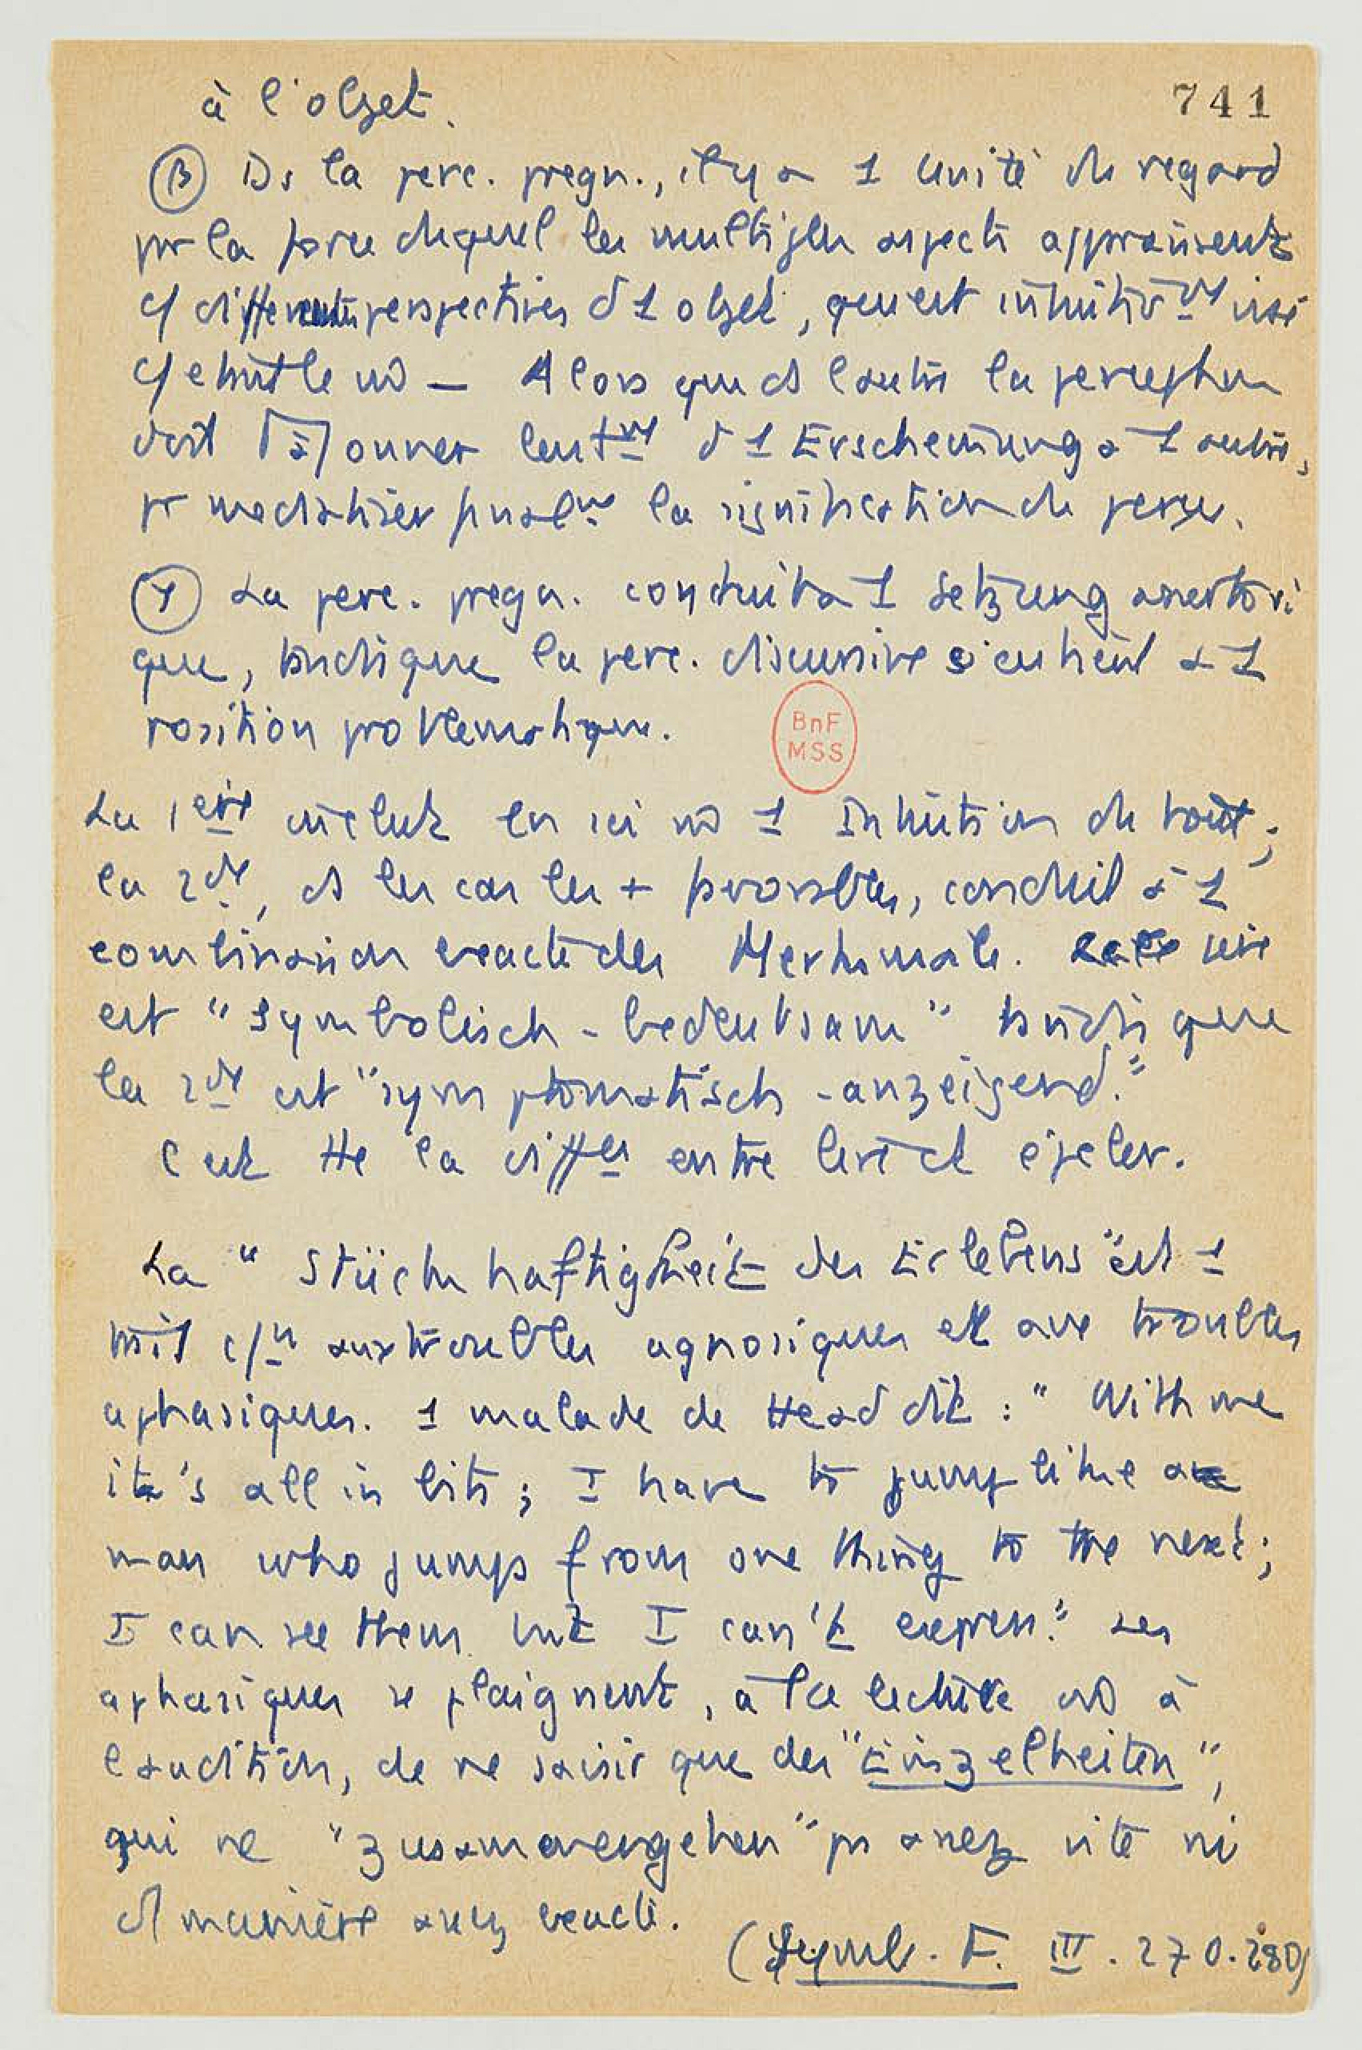 à l'objet.
741
β Ds la perc. pregn., il y a 1 unité du regard
pr la force duquel les multiples aspects apparaissent
c/ différentes perspectives d 1 objet, qui est intuitivmt visé
c/ tel
— Alors que ds l'autre la perception
doit [à] ouvrer lentmt d 1 Erscheinung à 1 autre,
pr médiatiser finalmt la signification du perçu.
γ La perc. pregn. conduit à 1 Setzung assertori
que, tandis que la perc. discursive s'en tient à 1
position problematique.
La 1ère inclut en soi 1 Intuition du tout ;
la 2de, ds les cas les + favorables, conduit à 1
combinaison exacte des Merkmale. une
est "symbolisch - bedeutsam" tandis que
la 2de est "symptomatisch - anzeigend."
C'est tte la diffce entre lire et épeler.
La "Stückhaftigkeit des Erlebens" est 1
trait c/n aux troubles agnosiques et aux troubles
aphasiques. 1 malade de Head dit : " With me
it's all in bits ; I have to jump like a
man who jumps from one thing to the next ;
I can see them but I can't express." Les
aphasiques se plaignent, à la lecture à
l'audition, de ne saisir que des "Einzelheiten",
qui ne "zusammengehen" pas assez vite ni
d manière assez exacte.
(Symb. F. III. 270. 280)
BnF
MSS